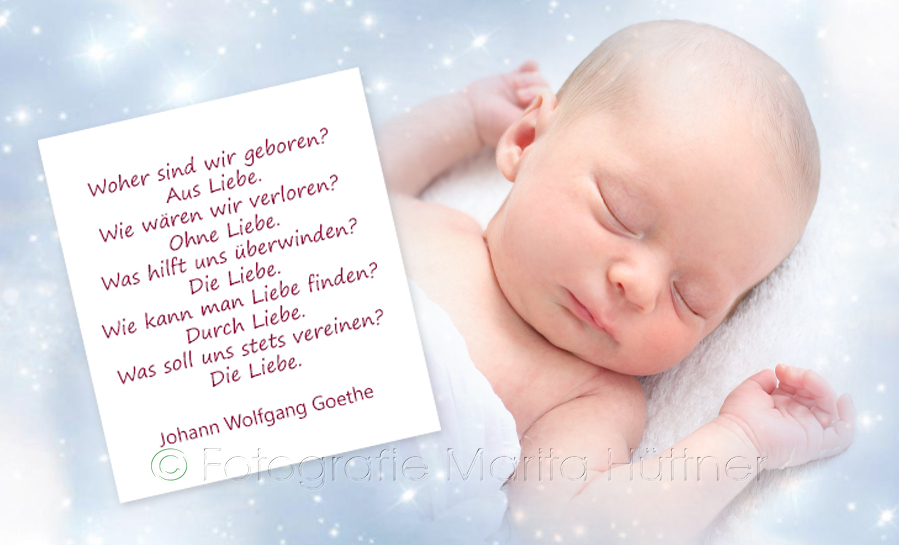 Woher sind wir geboren?
Aus Liebe.
Wie wären wir verloren?
Ohne Liebe.
Was hilft uns überwinden?
Die Liebe.
Wie kann man Liebe finden?
Durch Liebe.
Was soll uns stets vereinen?
Die Liebe.
Johann Wolfgang Goethe
© Fotografie Marita Hüttner